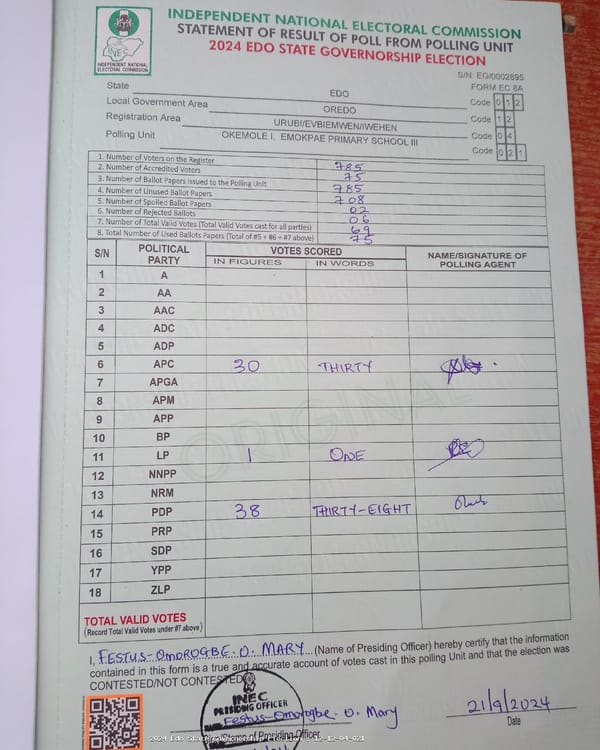 INDEPENDENT NATIONAL ELECTORAL COMMISSION
STATEMENT OF RESULT OF POLL FROM POLLING UNIT
2024 EDO STATE GOVERNORSHIP ELECTION
INEC
INDEPENDENT NATIONAL ELECTORAL COMMISSION
S/N: EG/0002895
FORM EC 8A
State EDO Code 0 1 2
Local Government Area OREDO Code 1 2
Registration Area URUBI/EVBIEMWEN/IWEHEN Code 0 4
Polling Unit OKEMOLE I, EMOKPAE PRIMARY SCHOOL III Code 0 2 1
1. Number of Voters on the Register 785
2. Number of Accredited Voters 75
3. Number of Ballot Papers Issued to the Polling Unit 785
4. Number of Unused Ballot Papers 708
5. Number of Spoiled Ballot Papers 02
6. Number of Rejected Ballots 06
7. Number of Total Valid Votes (Total Valid Votes cast for all parties) 69
8. Total Number of Used Ballots Papers (Total of #5 + #6 + #7 above) 75
S/N POLITICAL PARTY VOTES SCORED NAME/SIGNATURE OF POLLING AGENT
IN FIGURES IN WORDS
1 A
2 AA
3 AAC
4 ADC
5 ADP
6 APC 30 THIRTY
7 APGA
8 APM
9 APP
10 BP
11 LP 1 ONE
12 NNPP
13 NRM
14 PDP 38 THIRTY-EIGHT
15 PRP
16 SDP
17 YPP
18 ZLP
ORIGINAL
TOTAL VALID VOTES
(Record Total Valid Votes under #7 above)
I, FESTUS-OMOROGBE. O. MARY (Name of Presiding Officer) hereby certify that the information
contained in this form is a true and accurate account of votes cast in this polling Unit and that the election was
CONTESTED/NOT CONTESTED
INEC
PRESIDING OFFICER
Festus-Omorogbe O. Mary 21/9/2024
Name of Presiding Officer Date